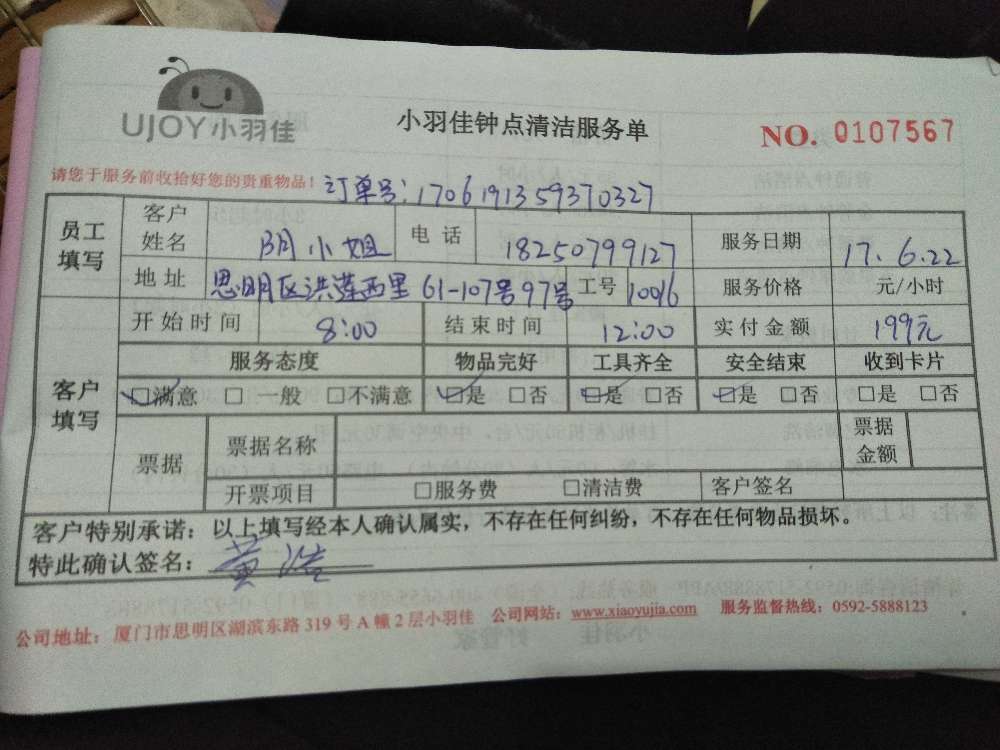 UJOY小羽佳
小羽佳钟点清洁服务单
NO. 0107567
请您于服务前收拾好您的贵重物品！ 订单号：1706191359370327
员工填写 客户姓名 阴小姐 电话 18250799127 服务日期 17.6.22
地址 思明区洪莲西里61-107号97号 工号 10016 服务价格 元/小时
开始时间 8:00 结束时间 12:00 实付金额 199元
客户填写 服务态度 物品完好 工具齐全 安全结束 收到卡片
☑满意 □一般 □不满意 ☑是 □否 ☑是 □否 ☑是 □否 □是 □否
票据 票据名称 票据金额
开票项目 □服务费 □清洁费 客户签名
客户特别承诺：以上填写经本人确认属实，不存在任何纠纷，不存在任何物品损坏。
特此确认签名：黄浩
公司地址：厦门市思明区湖滨东路319号A幢2层小羽佳 公司网站：www.xiaoyujia.com 服务监督热线：0592-5888123